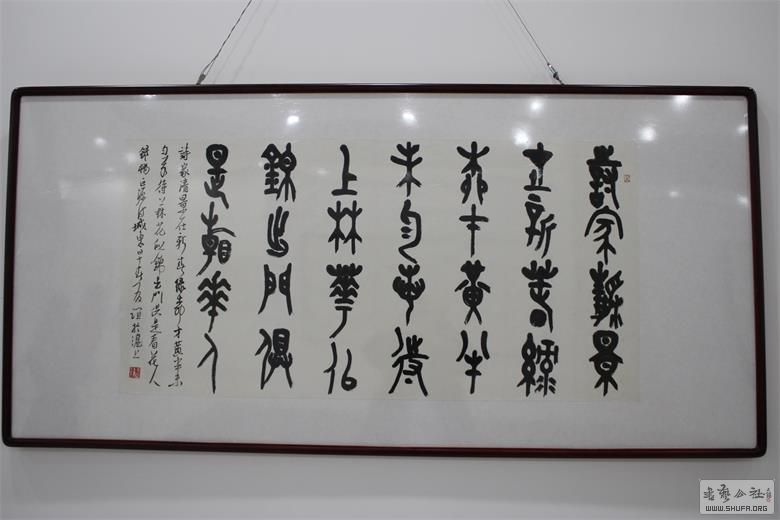 詩家清景
在新春綠
柳才黃半
未勻若待
上林華似
錦出門俱
是看華人
詩家清景在新春綠柳才黃半未
勻若待上林花似錦出門俱是看花人
錄楊巨源詩城東
书艺公社
WWW.SHUFA.ORG